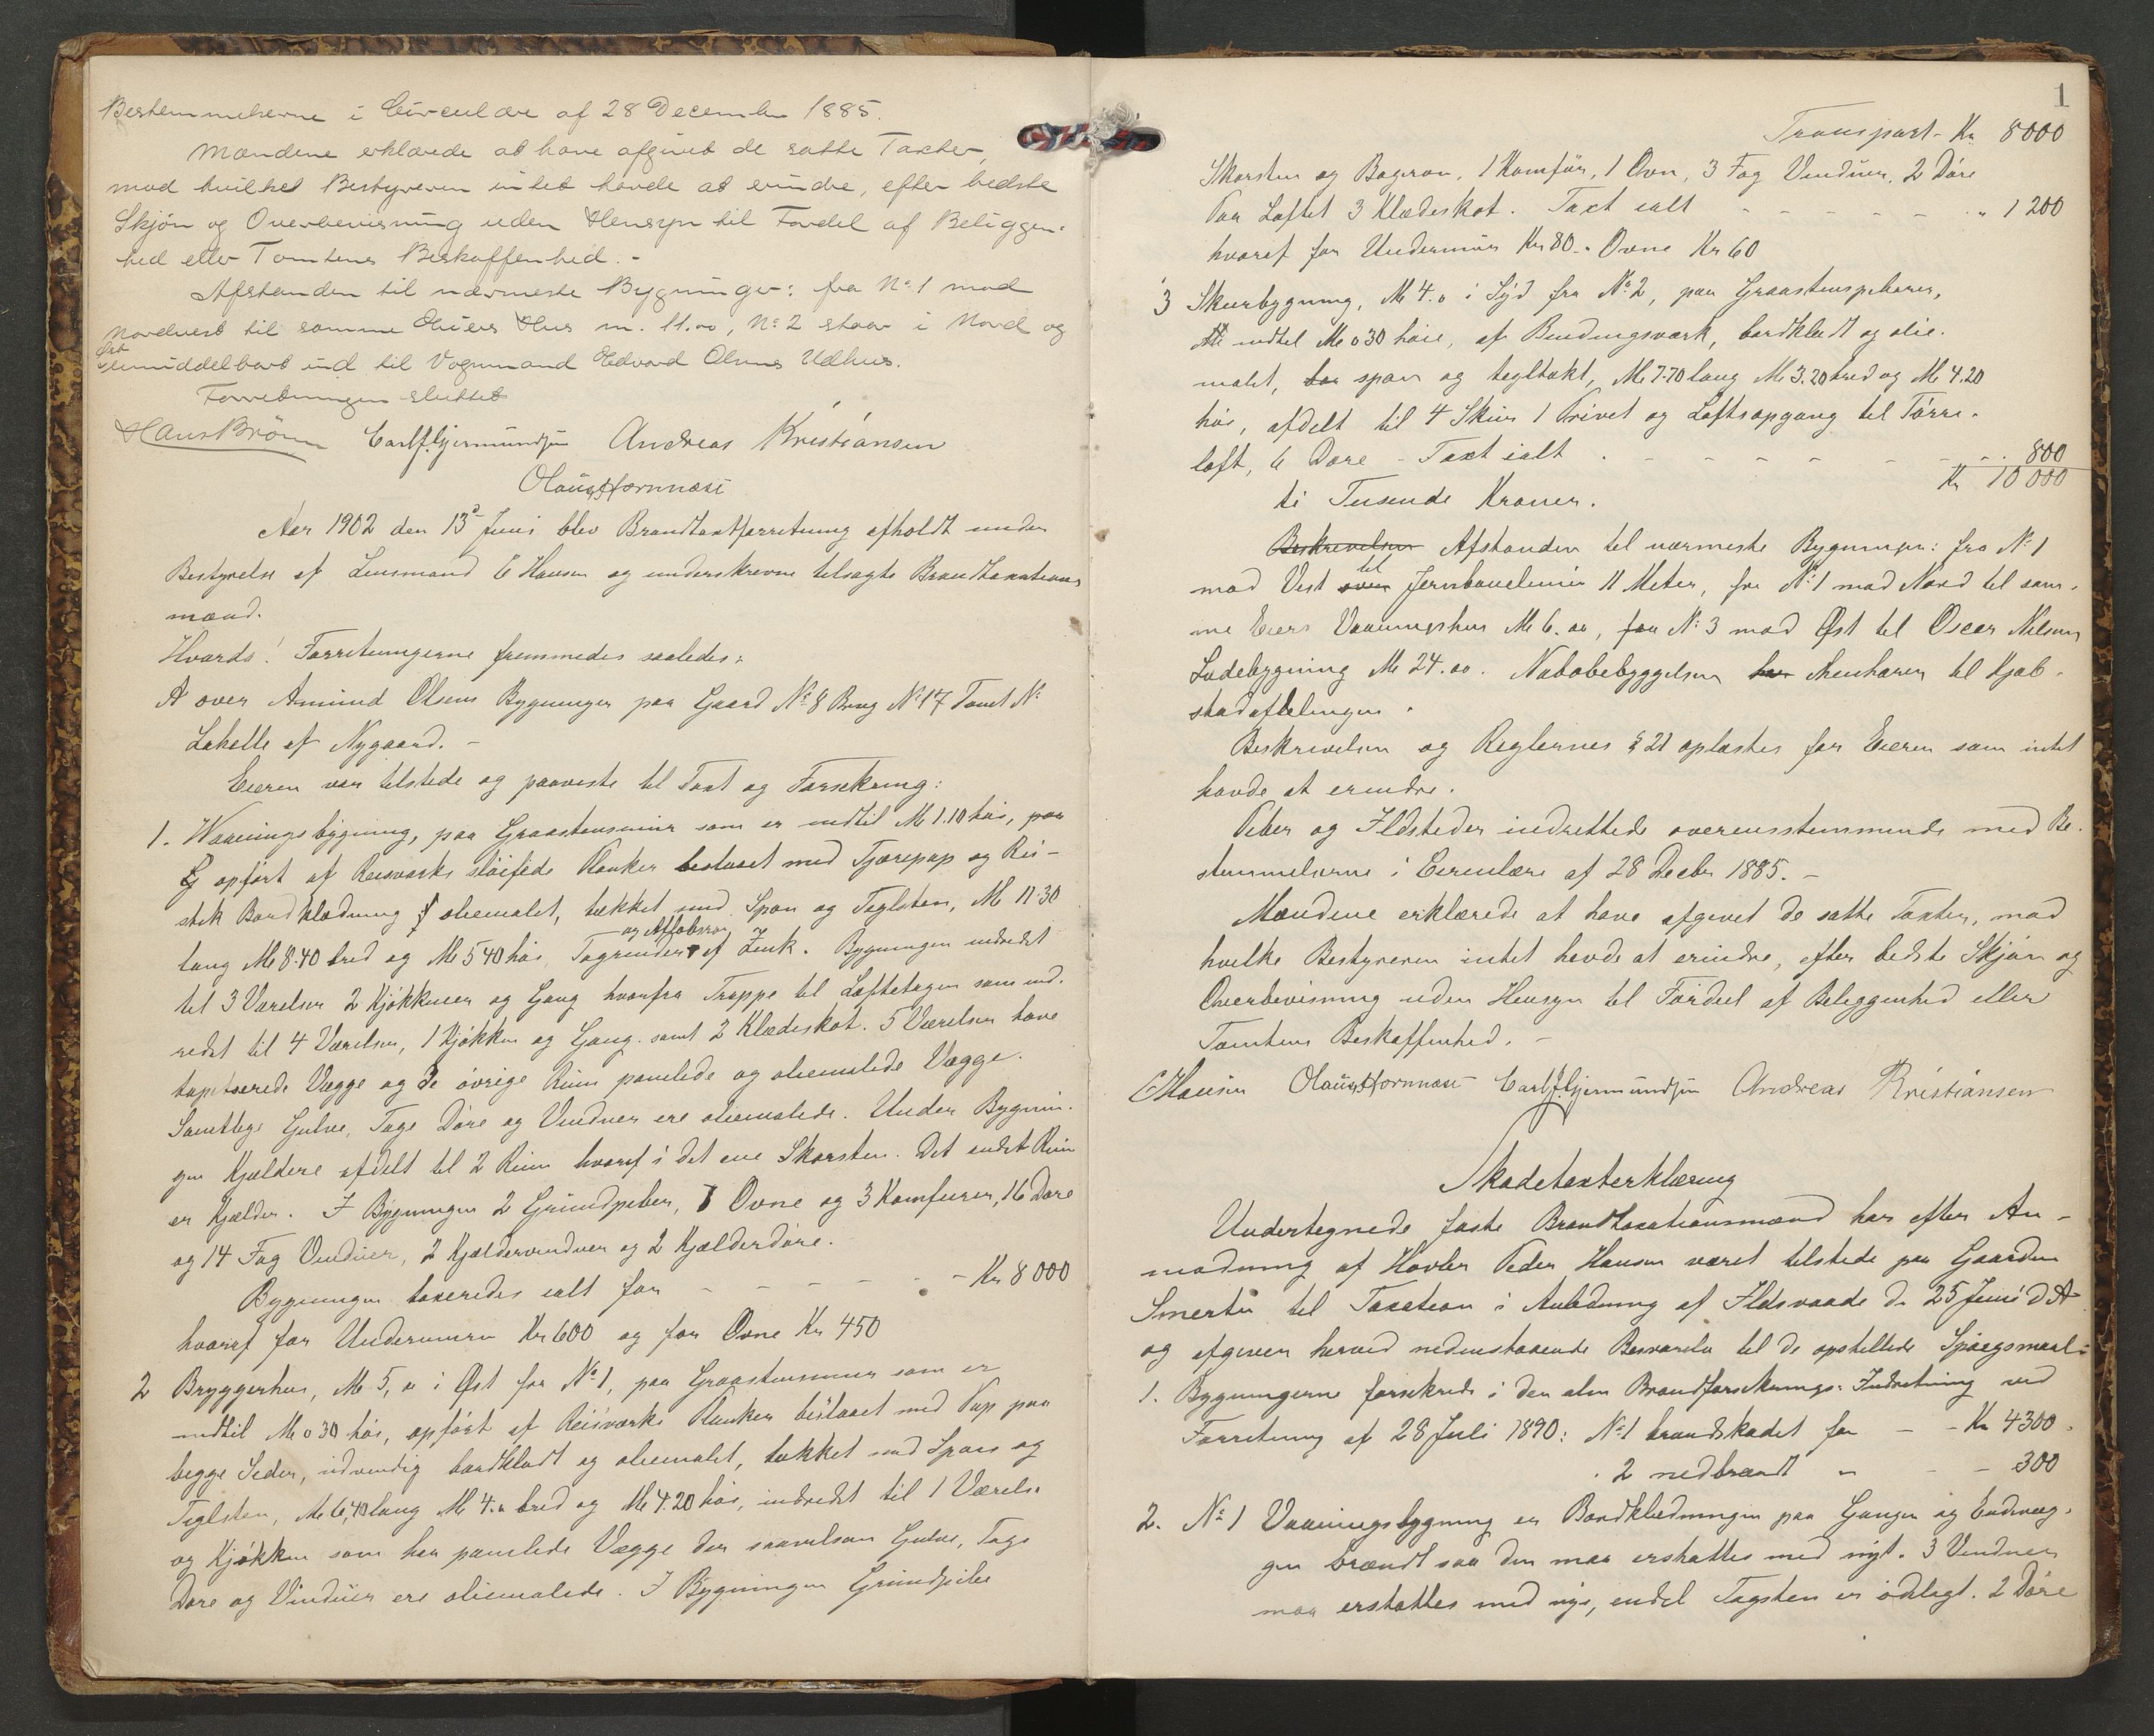 Bestemmelserne i Circulære af 28 December 1885.
Mændene erklærede at have afgivet de satte Taxter,
mod hvilket Bestyreren intet havde at erindre, efter bedste
Skjøn og Overbevisning uden Hensyn til Fordel af Beliggen-
hed eller Tomtens Beskaffenhed. -
Afstanden til nærmeste Bygninger: fra No 1 mod
Nordvest til samme Eiers Hus m. 11.00, No 2 staar i Nord og
Øst
umiddelbart ind til Vognmand Edvard Olsens Udhus.
Forretningen sluttet
Hans Brönn Carl J. Gjermundsen Andreas Kristiansen
Olaus Hornnæss
Aar 1902 den 13de Juni blev Brandtaxtforretning afholdt under
Bestyrelse af Lensmand E Hansen og underskrevne tilsagte Brandtaxations
mænd.
Hvorda! Forretningerne fremmedes saaledes:
A over Amund Olsens Bygninger paa Gaard No 8 Brug No 17 Tomt No
Lökelle af Nygaard. -
Eieren var tilstede og paaviste til Taxt og Forsikring:
1. Vaaningsbygning, paa Graastensmur som er indtil M 1.10 høi, paa
G opført af Reisværks sløifede Planker beslaaet med Tjærepap og Rei-
stek Bordklædning & oliemalet, tækket med Spon og Teglsten, M 11.30
og Afløbsrør
lang M 8.40 bred og M 5 40 høi Tagrender af Zink. Bygningen indredet
til 3 Værelser 2 Kjøkkener og Gang hvorfra Trappe til Loftetagen som ind-
redet til 4 Værelser, 1 Kjøkken og Gang samt 2 Klædeskot. 5 Værelser have
taptserede Vægge og de øvrige Rum panelede og oliemalede Vægge.
Samtlige Gulve, Tage Døre og Vinduer ere oliemalede. Under Bygnin-
gen Kjældere afdelt til 2 Rum hvoraf i det ene Skorsten. Det andet Rum
er Kjælder. I Bygningen 2 Grundpiber, 8 Ovne og 3 Komfurer, 16 Døre
og 14 Fag Vinduer, 2 Kjældervinduer og 2 Kjælderdøre.
Bygningen taxeredes ialt for - - - - - - Kr 8 000
hvoraf for Undermuren Kr 600 og for Ovne Kr 450
2 Bryggerhus, M 5,0 i Øst fra No 1, paa Graastensmur som er
indtil M 0 30 høi, opført af Reisværks Planker beslaaet med Pap paa
begge Sider, udvendig bordklædt og oliemalet, tækket med Spon og
Teglsten, M 6,40 lang M 4.0 bred og M 4.20 høi, indredet til 1 Værelse
og Kjøkken som har panelede Vægge der saavelsom Gulve, Tage
Døre og Vinduer ere oliemalede. I Bygningen Grundpibe
1
Transport - Kr 8000
Skorsten og Bagerovn, 1 Komfür, 1 Ovn, 3 Fag Vinduer, 2 Døre
Paa Loftet 3 Klædeskot. Taxt ialt - - - - - - " 1 200
hvoraf for Undermur Kr 80. Ovne Kr 60
3 Skurbygning, M 4.0 i Syd fra No 2, paa Graastenspilarer,
indtil M 0 30 høie, af Bindingsværk, bordklædt og olie-
malet, spon og tegltækt, M 7.70 lang M 3.20 bred og M 4.20
høi, afdelt til 4 Skur 1 Privet og Loftsopgang til Tørre-
loft, 6 Døre - Taxt ialt . - - - - - - - 800
Kr 10 000
ti Tusende Kroner.
Beskrivelsen Afstanden til nærmeste Bygninger: fra No 1
til
mod Vest over Jernbanelinie 11 Meter, fra No 1 mod Nord til sam-
me Eiers Vaaningshus M 6.00, fra No 3 mod Øst til Oscar Nilsens
Ladebygning M 24.00. Nabobebyggelsen henhører til Kjøb-
stadafdelingen.
Beskrivelsen og Reglernes § 21 oplæstes for Eieren som intet
havde at erindre.
Piber og Ildsteder indrettede overensstemmende med Be-
stemmelserne i Circulære af 28 Decbr 1885. -
Mændene erklærede at have afgivet de satte Taxter, mod
hvilke Bestyreren intet havde at erindre, efter bedste Skjøn og
Overbevisning uden Hensyn til Fordeel af Beliggenhed eller
Tomtens Beskaffenhed. -
E Hansen Olaus Hornnæss Carl J. Gjermundsen Andreas Kristiansen
Skadetaxterklæring
Undertegnede faste Brandtaxationsmænd har efter An-
modning af Høvler Peder Hansen været tilstede paa Gaarden
Smertu til Taxation i Anledning af Ildsvaade d. 25 Juni d. A
og afgiver herved nedenstaaende Besvarelse til de opstillede Spørgsmaal:
1. Bygningerne forsikrede i den alm Brandforsikrings-Indretning ved
Forretning af 28 Juli 1890: No 1 brandskadet for - - Kr 4300.
. 2 nedbrændt " - - 300
2. No 1 Vaaningsbygning er Bordklædningen paa Gangen og Endevæg-
gen brændt saa den maa erstattes med nyt. 3 Vinduer
maa erstattes med nye, endel Tagsten er ødelagt. 2 Døre